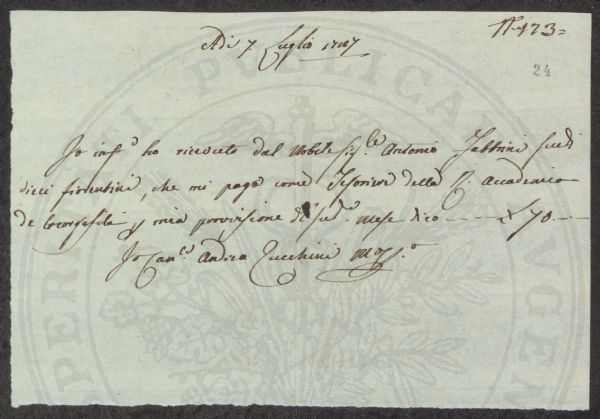 N. 173=
Adi 7. Luglio 1787
24
Io inf.o ho ricevuto dal Nobile Sig.le Antonio Fabbrini scudi
dieci fiorentini, che mi paga come Tesoriere della R. Accademia
de Georgofili p mia provvisione del sud.o mese dico ---- 10 ---
Io Can.co Andrea Zucchini M.o P.o
PERATI PUBLICAE